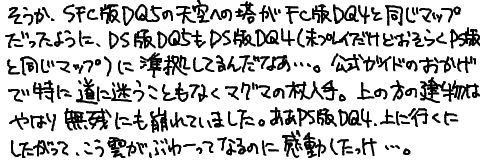 そうか、SFC版DQ5の天空への塔がFC版DQ4と同じマップ
だったように、DS版DQ5もDS版DQ4(未プレイだけどおそらくPS版
と同じマップ)に準拠してるんだなあ…。公式ガイドのおかげ
で特に道に迷うこともなくマグマの杖入手。上の方の建物は
やはり無残にも崩れていました。ああPS版DQ4、上に行くに
したがって、こう雲がぶわーってなるのに感動したっけ…。